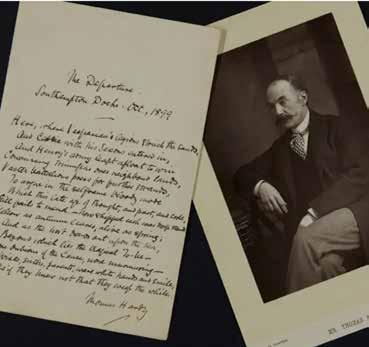 The Departure.
Southampton Docks. Oct., 1899
Here, where Vespasian's legions struck the sands,
And Cerdic with his Saxons entered in,
And Henry's army leapt afloat to win
Convincing triumphs over neighbour lands,
Vaster battalions press for further strands,
To argue in the selfsame bloody mode
Which this late age of thought, and pact, and code,
Still fails to mend. Now
Yellow as autumn leaves, alive as spring;
And as out upon the sea,
Beyond which lies the tragical To-be,
None dubious of the Cause, none murmuring —
Wives, sisters, parents, wave white hands and smile,
As if they knew not that they weep the while.
Thomas Hardy
MR. THOMAS